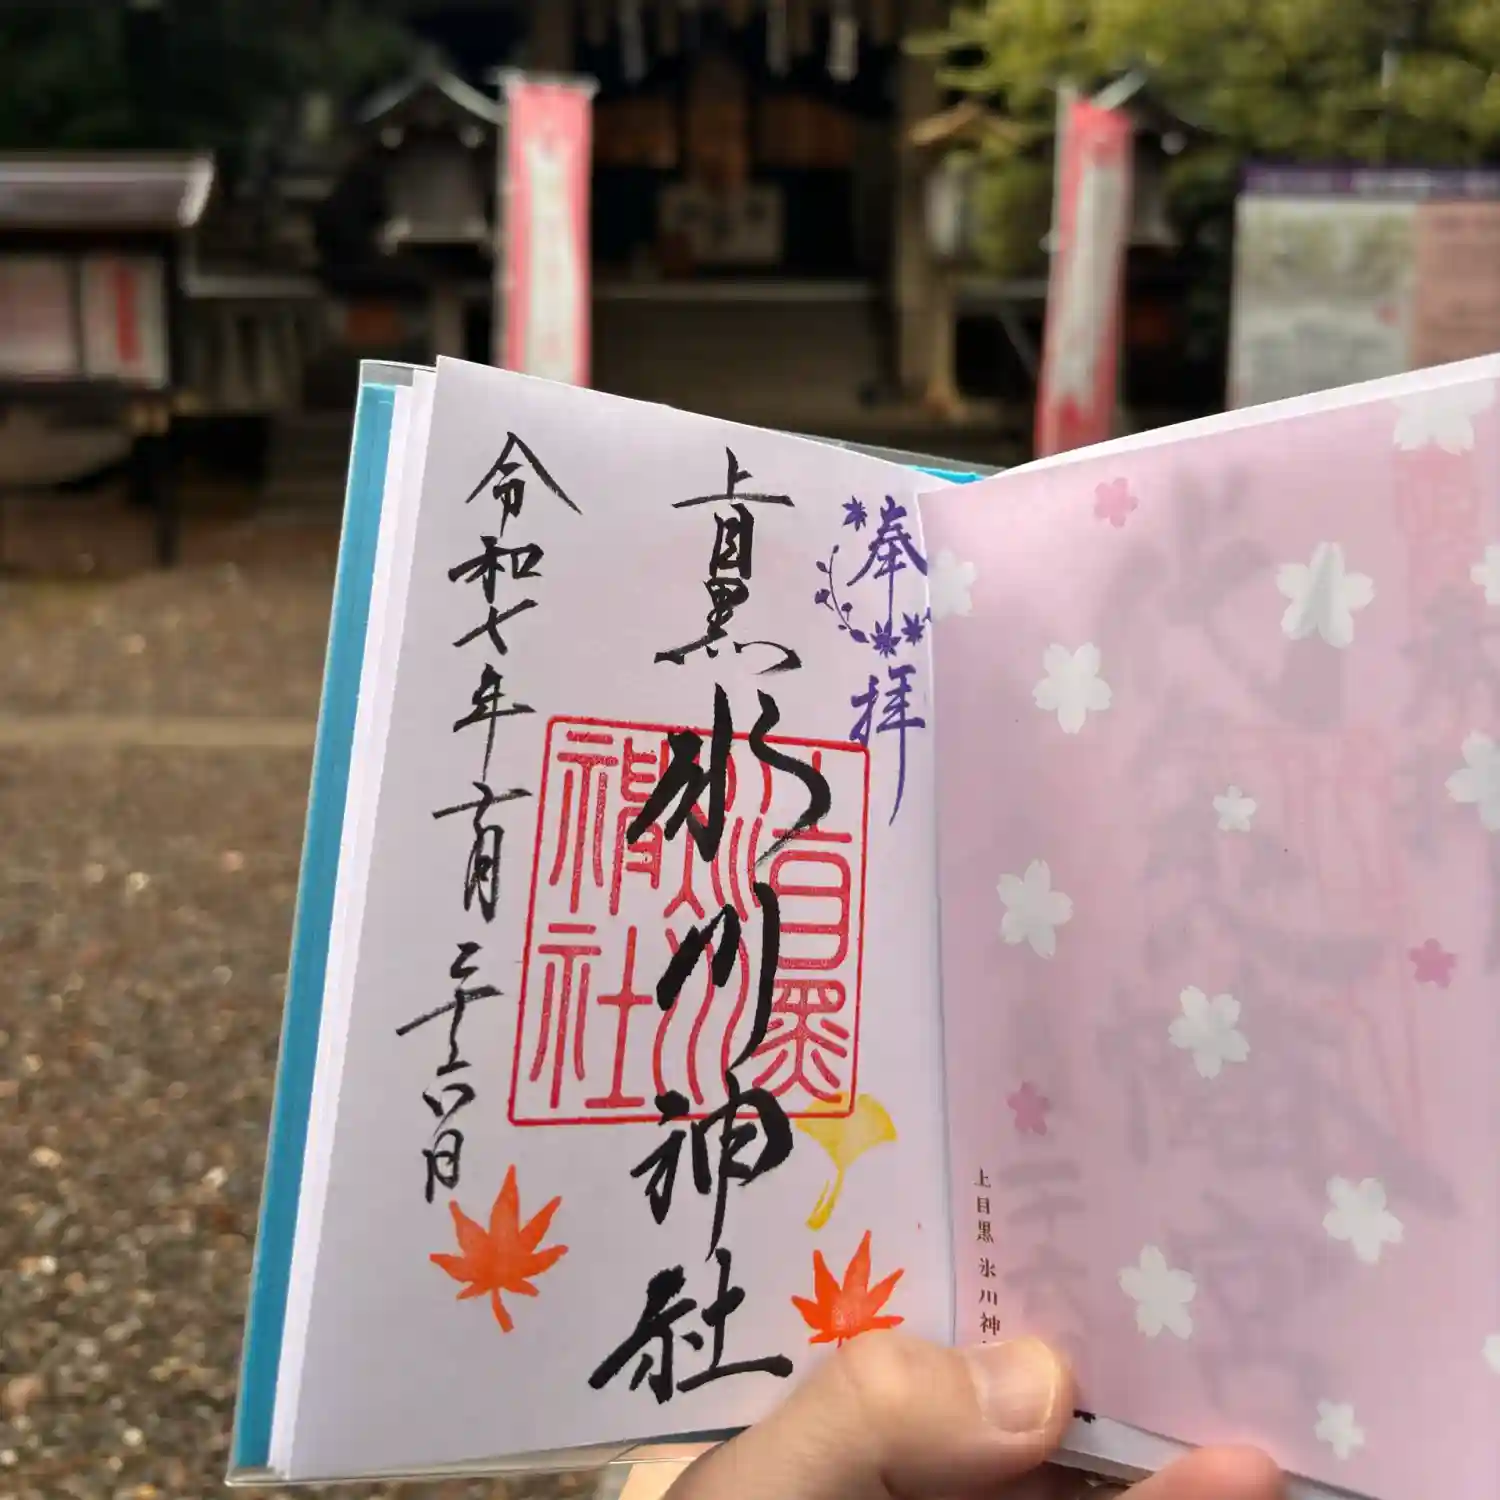 奉拝
上目黒氷川神社
令和七年十一月二十六日
上目黒氷川神社
上目黒 氷川神